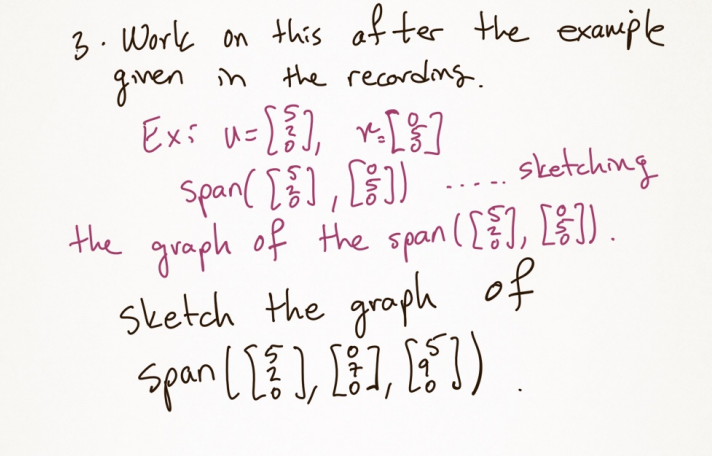 3. Work on this after the example
given in the recording.
Ex: u=[5 2 0], v=[0 5 0]
span([5 2 0], [0 5 0]) ..... sketching
the graph of the span([5 2 0], [0 5 0]).
sketch the graph of
span([5 2 0], [0 7 0], [5 9 0]).